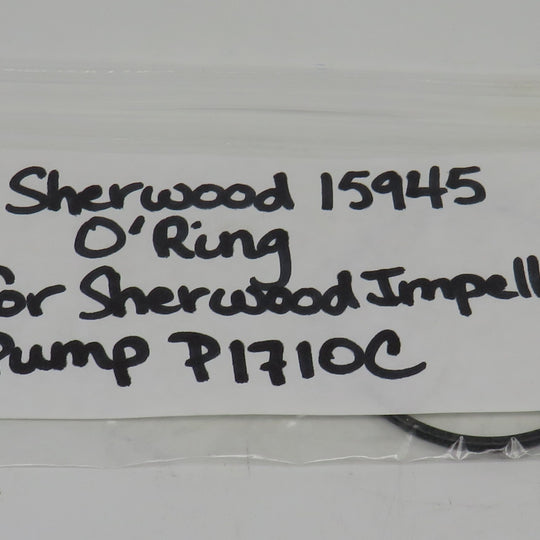 Sherwood 15945
O'Ring
for Sherwood Impell
Pump P1710C